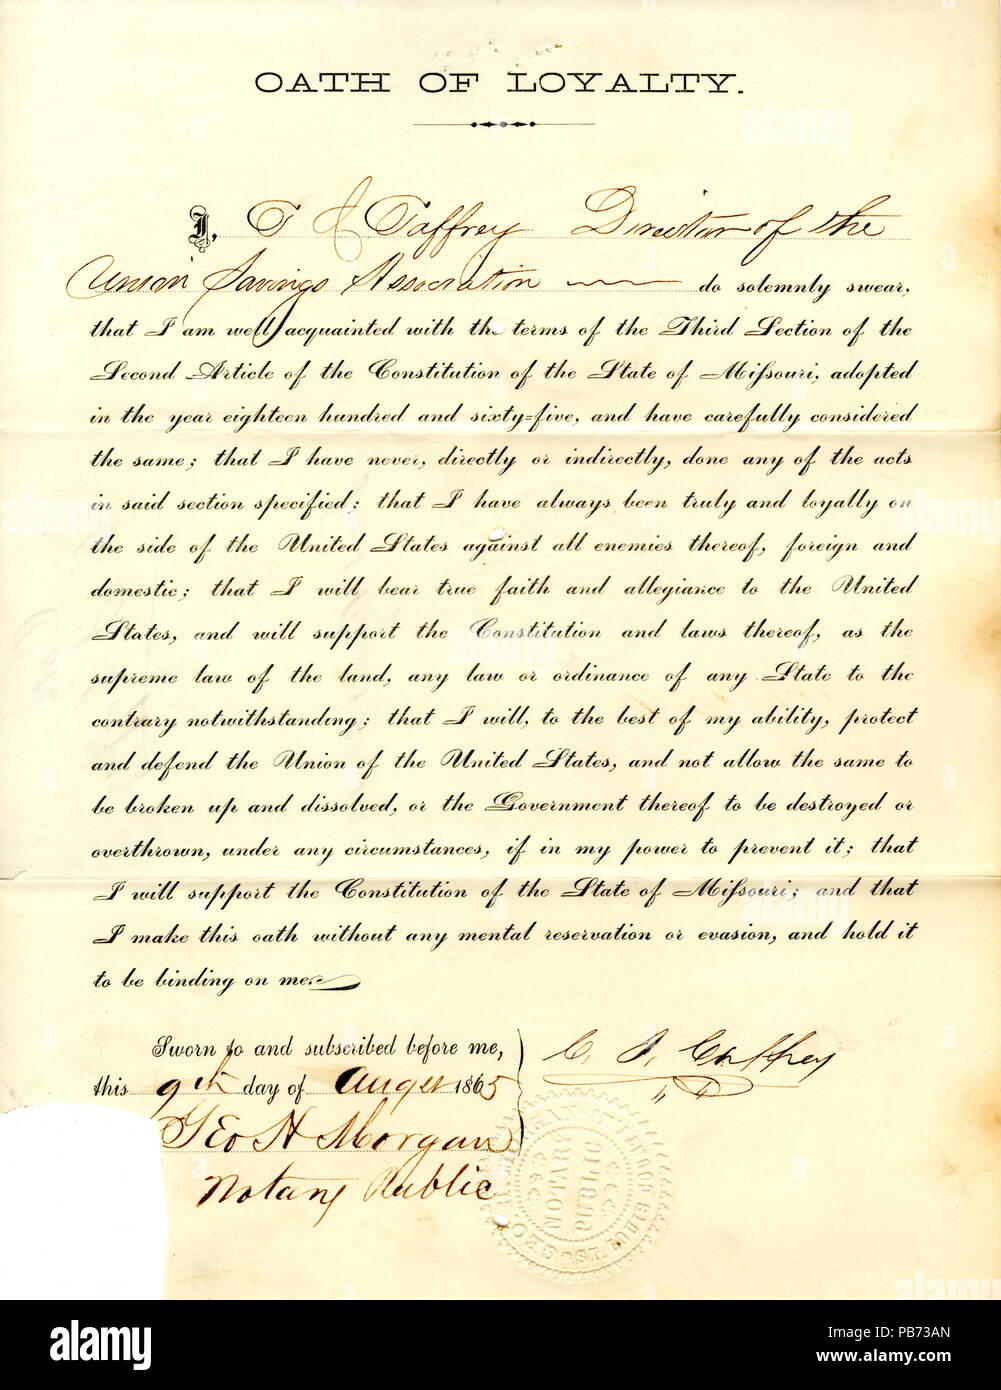 OATH OF LOYALTY.
I, C J Caffrey Director of the
Union Savings Association do solemnly swear,
that I am well acquainted with the terms of the Third Section of the
Second Article of the Constitution of the State of Missouri, adopted
in the year eighteen hundred and sixty=five, and have carefully considered
the same; that I have never, directly or indirectly, done any of the acts
in said section specified; that I have always been truly and loyally on
the side of the United States against all enemies thereof, foreign and
domestic; that I will bear true faith and allegiance to the United
States, and will support the Constitution and laws thereof, as the
supreme law of the land, any law or ordinance of any State to the
contrary notwithstanding; that I will, to the best of my ability, protect
and defend the Union of the United States, and not allow the same to
be broken up and dissolved, or the Government thereof to be destroyed or
overthrown, under any circumstances, if in my power to prevent it; that
I will support the Constitution of the State of Missouri; and that
I make this oath without any mental reservation or evasion, and hold it
to be binding on me.
Sworn to and subscribed before me,
this 9th day of August 1865
C. J. Caffrey
Geo H Morgan
Notary Public
NOTARY PUBLIC
ST. LOUIS
alamy
Image ID: PB73AN
www.alamy.com